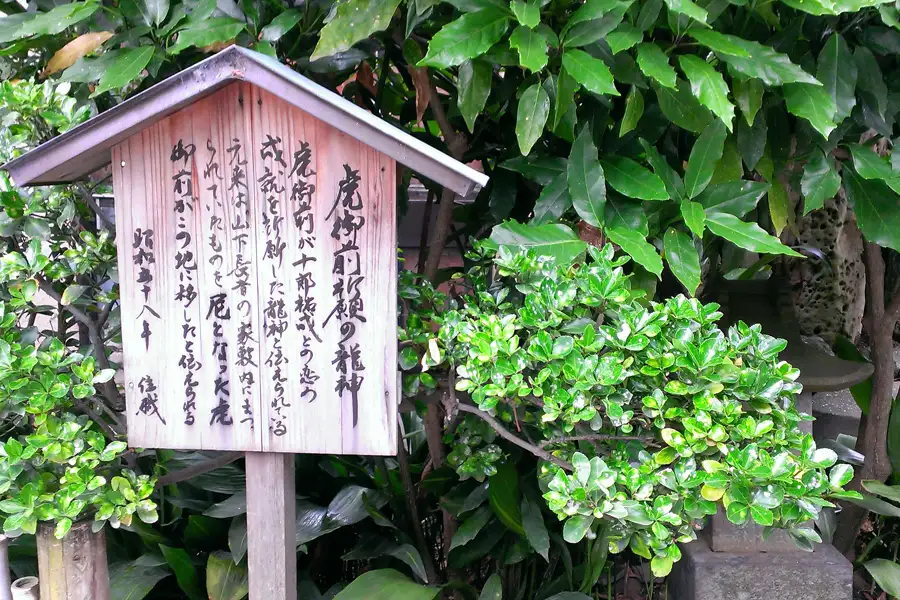 虎御前祈願の龍神
虎御前が十郎祐成との恋の
成就を祈願した龍神と伝えられている
元来は山下長者の家敷内にまつ
られていたものを尼となった虎
御前がこの地に移したと伝えられる
昭和五十八年
住職